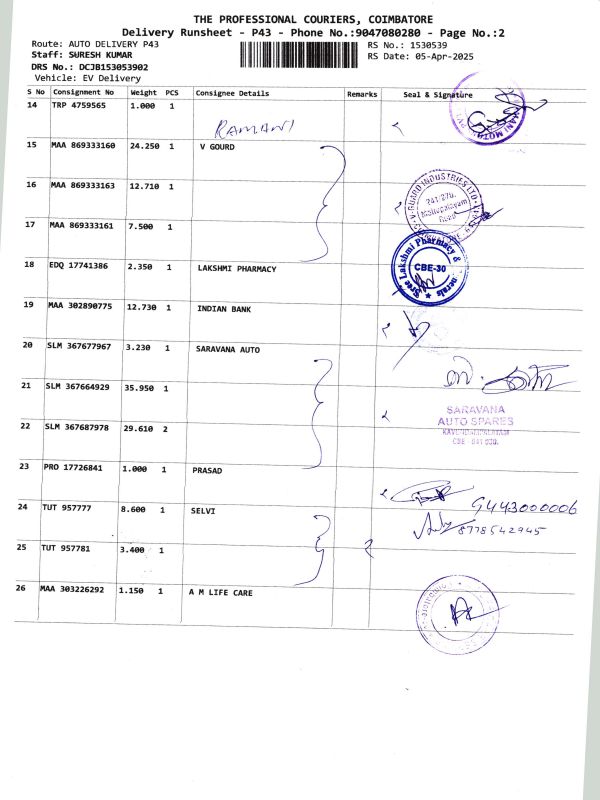 THE PROFESSIONAL COURIERS, COIMBATORE
Delivery Runsheet - P43 - Phone No.:9047080280 - Page No.:2
Route: AUTO DELIVERY P43
RS No.: 1530539
Staff: SURESH KUMAR
RS Date: 05-Apr-2025
DRS No.: DCJB153053902
Vehicle: EV Delivery
S No Consignment No Weight PCS Consignee Details Remarks Seal & Signature
14 TRP 4759565 1.000 1
RAMANI
15 MAA 869333160 24.250 1 V GOURD
16 MAA 869333163 12.710 1
V-GUARD INDUSTRIES LTD
241/270,
Mettupalayam
Road
17 MAA 869333161 7.500 1
Sree Lakshmi Pharmacy &
CBE-30
18 EDQ 17741386 2.350 1 LAKSHMI PHARMACY
19 MAA 302890775 12.730 1 INDIAN BANK
20 SLM 367677967 3.230 1 SARAVANA AUTO
21 SLM 367664929 35.950 1
SARAVANA
AUTO SPARES
22 SLM 367687978 29.610 2
CBE - 641 030.
23 PRO 17726841 1.000 1 PRASAD
9443000006
24 TUT 957777 8.600 1 SELVI
8778542945
25 TUT 957781 3.400 1
26 MAA 303226292 1.150 1 A M LIFE CARE